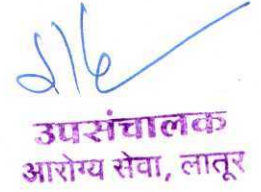 उपसंचालक
आरोग्य सेवा, लातूर